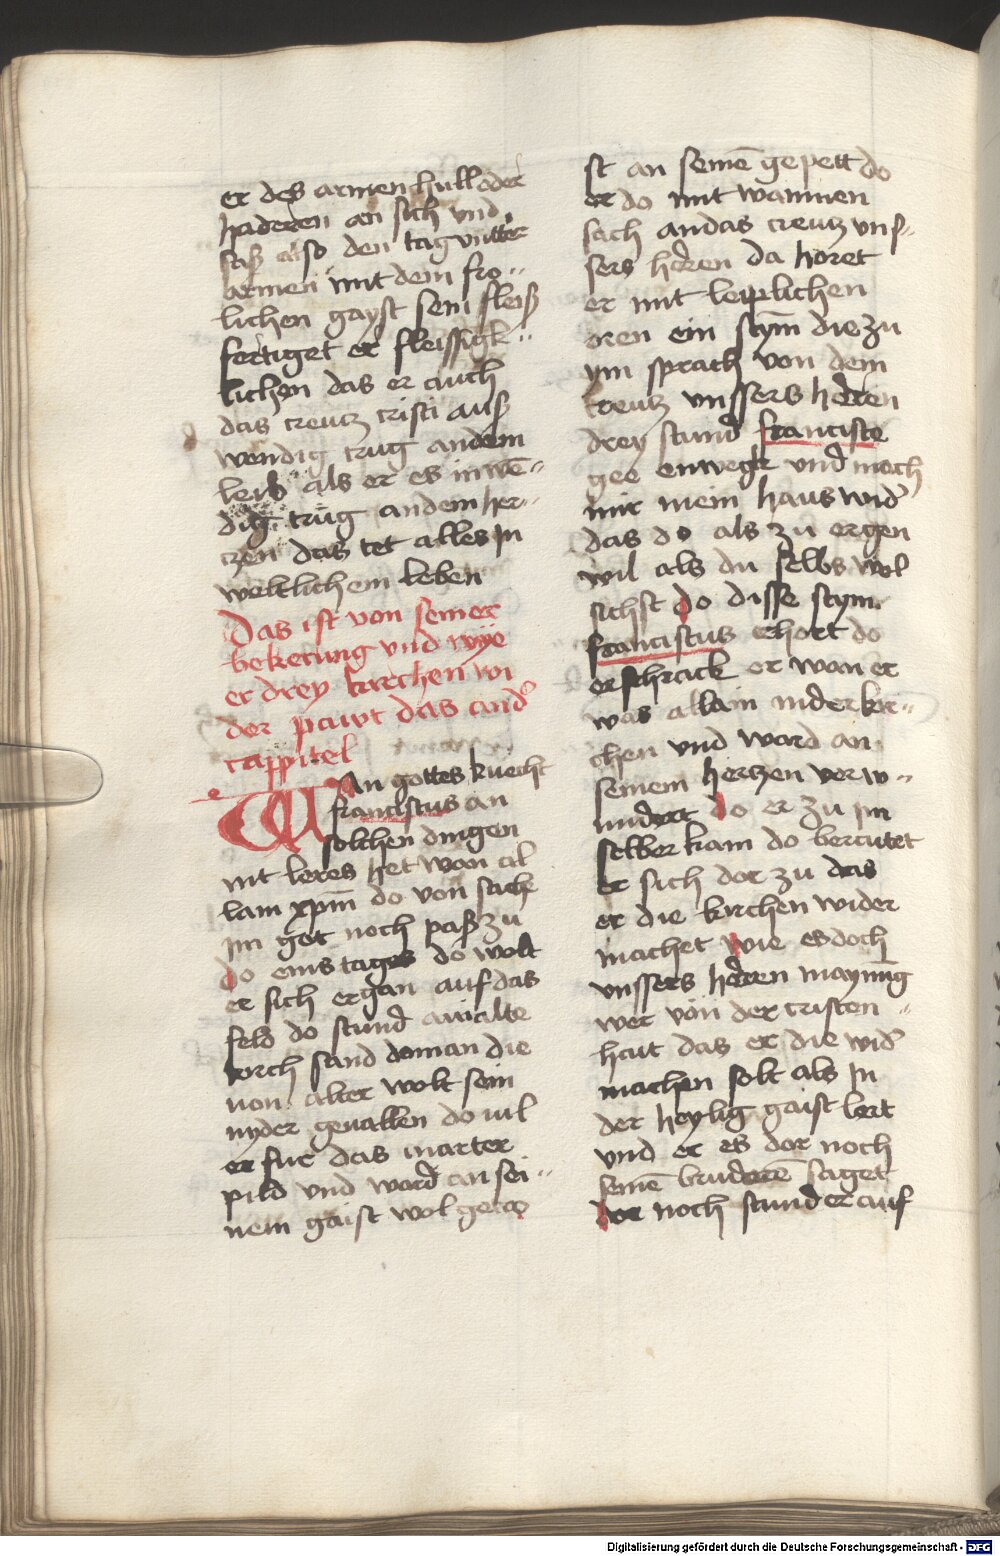 er des armen hull oder
haderen an sich vnd
saß also den tag vntter
armen mit dem fro„
lichen gayst sein fleiß
fertiget er fleissigk„
lichen das er auch
das creutz cristi auß
wendig trug an dem
leib als er es inwē„
dig trug an dem her„
czen das tet alles in
weltlichem leben
Das ist von seiner
bekerung vnd wye
er drey kirchen wi
der pawt das and̉
cappitel
WAn gottes knecht
franciscus an
solchen dingen
nit leres het wan al
lain xpm̄ do von sache
im got noch paß zu
do eins tages do wolt
er sich ergan auf das
feld do stund ain alte
kirch sand doman die
von alter wolt sein
nyder geuallen do viel
er fur das marter
pild vnd ward an sei„
nem gaist wol getro
st an seinē gepett do
er do mit wainnen
sach an das creutz vns„
sers herren da horet
er mit leiplichen
oren ein stym̄ die zu
ym sprach von dem
creutz vnssers herren
drey stund francisce
gee enwegk vnd mach
mir mein haus wid̉
das do als zu ergen
wil als du selbs wol
sichst do disse stym
franciscus erhort do
erschrack er wan er
was allain in der kir„
chen vnd ward an
seinem hertzen verw„
undert do er zu im
selber kam do beraitet
er sich dor zu das
er die kirchen wider
machet wie es doch
vnssers herren maynūg
wer von der cristen„
hait das er die wid̉
machen solt als in
der heylig gaist lert
vnd er es dor noch
seinē bruderē saget
dor noch stund er auf
Digitalisierung gefördert durch die Deutsche Forschungsgemeinschaft - DFG